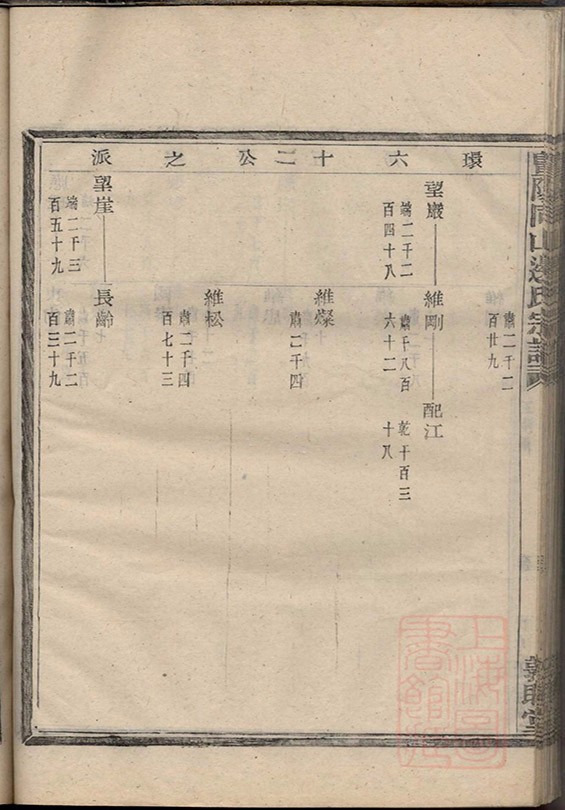 環六十二公之派
肅二千二
百廿九
望巖
端二千二
百四十八
維剛
肅千八百
六十二
配江
乾千百三
十八
維燦
肅二千四
維松
肅二千四
百七十三
望崖
端二千三
百五十九
長齡
肅二千二
百三十九
暨陽同山邊氏宗譜
上海圖書館藏